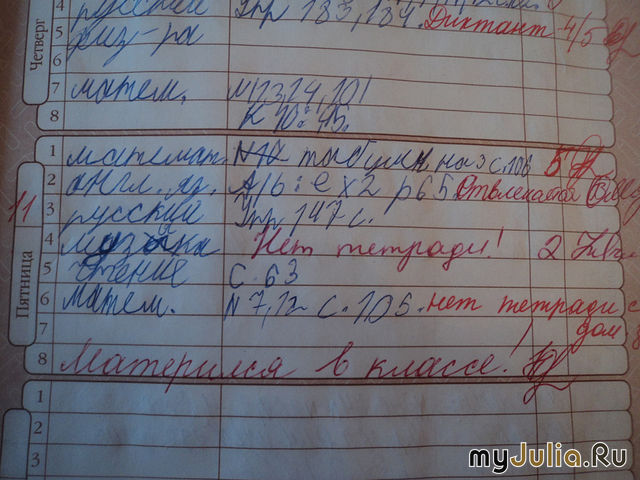 4 русский Упр 183, 184. Диктант 4/5
5 физ-ра
Четверг
6
7 матем.
8
1 математ. на з с. 106 5
2 англ. яз. A/b: ex2 p65 Отвлекается
11
3 русский Упр 147 с.
4 музыка Нет тетради! 2
Пятница
5 чтение С. 63
6 матем. N 7,12 с. 105. нет тетради с
7 дом
8 Матерился в классе!
1
2
3
myJulia.Ru